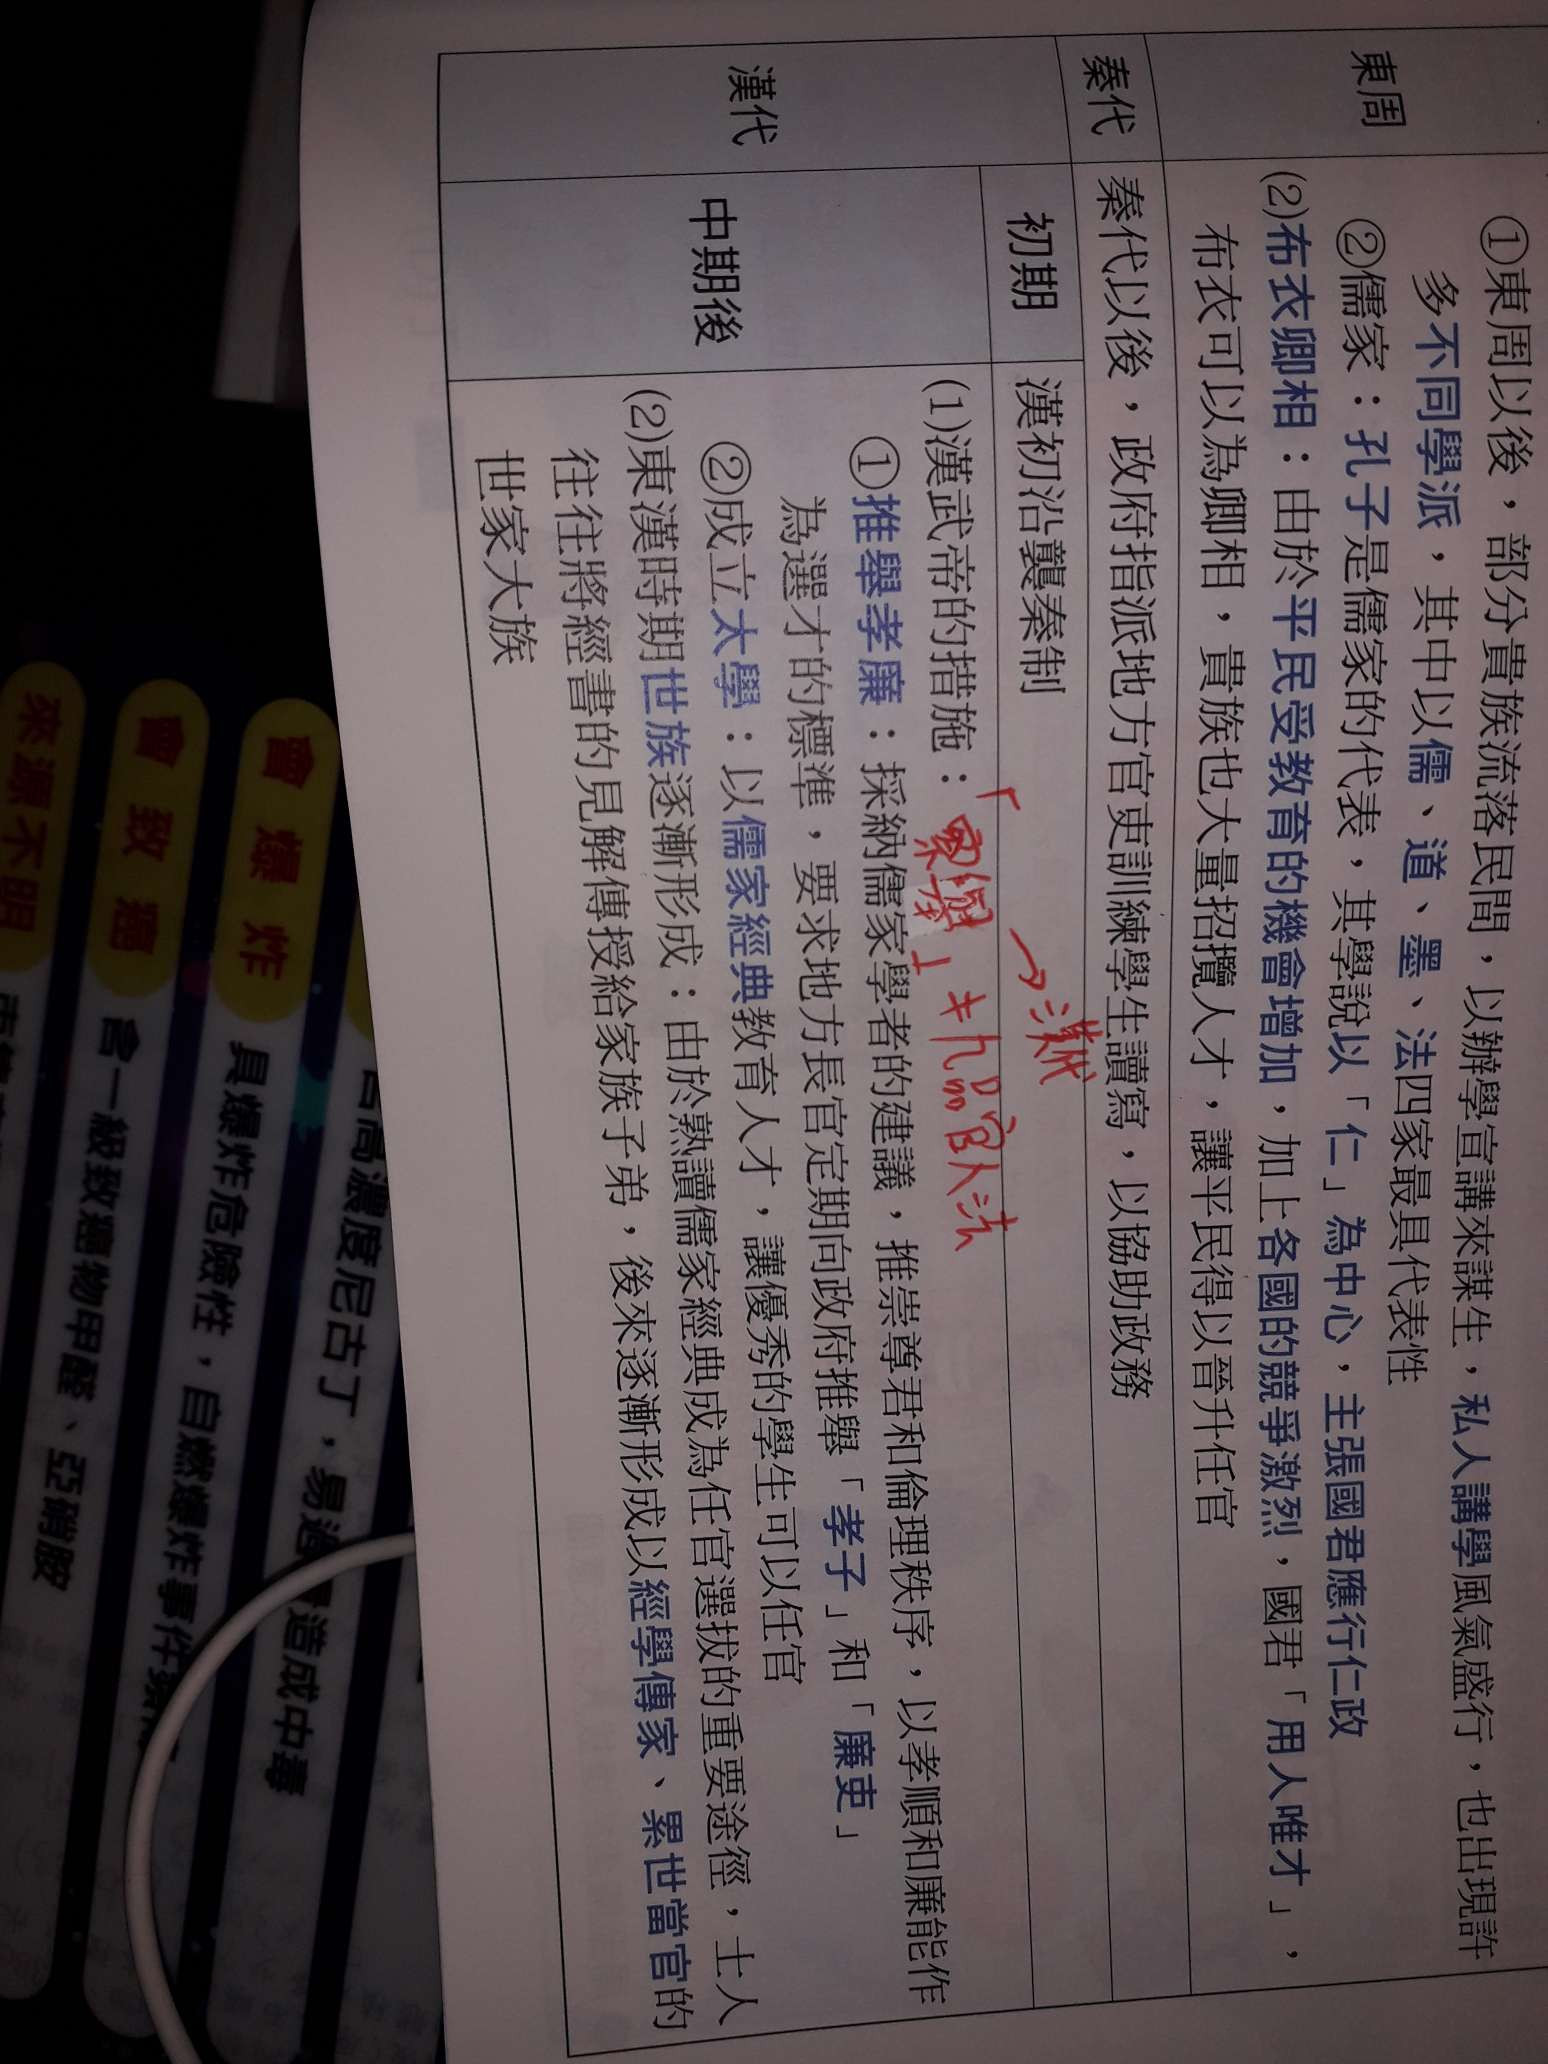 東周
①東周以後，部分貴族流落民間，以辦學宣講來謀生，私人講學風氣盛行，也出現許
多不同學派，其中以儒、道、墨、法四家最具代表性
②儒家：孔子是儒家的代表，其學說以「仁」為中心，主張國君應行仁政
(2)布衣卿相：由於平民受教育的機會增加，加上各國的競爭激烈，國君「用人唯才」，
布衣可以為卿相，貴族也大量招攬人才，讓平民得以晉升任官
秦代
秦代以後，政府指派地方官吏訓練學生讀寫，以協助政務
漢代
初期
漢初沿襲秦制
→漢代
中期後
(1)漢武帝的措施：
「察舉」
九品官人法
①推舉孝廉：採納儒家學者的建議，推崇尊君和倫理秩序，以孝順和廉能作
為選才的標準，要求地方長官定期向政府推舉「孝子」和「廉吏」
②成立太學：以儒家經典教育人才，讓優秀的學生可以任官
(2)東漢時期世族逐漸形成：由於熟讀儒家經典成為任官選拔的重要途徑，士人
往往將經書的見解傳授給家族子弟，後來逐漸形成以經學傳家、累世當官的
世家大族
含高濃度尼古丁，易過
造成中毒
會爆炸
具爆炸危險性，自燃爆炸事件頻
會致癌
含一級致癌物甲醛、亞硝胺
來源不明